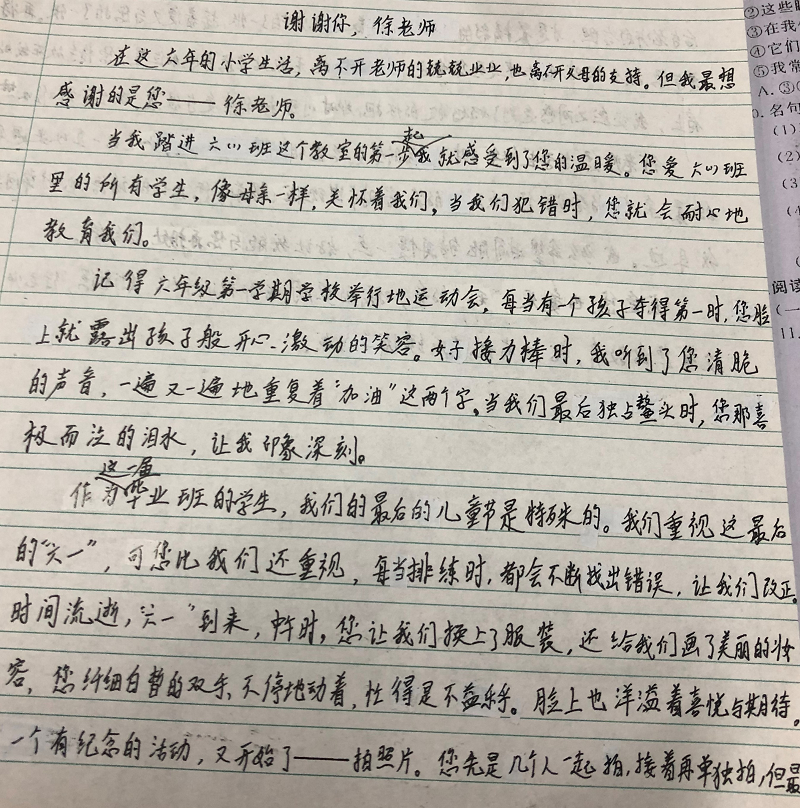 谢谢你，徐老师
在这六年的小学生活，离不开老师的兢兢业业，也离不开父母的支持。但我最想
感谢的是您——徐老师。
起
当我踏进六(1)班这个教室的第一步我就感受到了您的温暖。您爱六(1)班
里的所有学生，像母亲一样，关怀着我们，当我们犯错时，您就会耐心地
教育我们。
记得六年级第一学期学校举行地运动会，每当有一个孩子夺得第一时，您脸
上就露出孩子般开心、激动的笑容。女子接力棒时，我听到了您清脆
的声音，一遍又一遍地重复着"加油"这两个字。当我们最后独占鳌头时，您那喜
极而泣的泪水，让我印象深刻。
这一届
作为毕业班的学生，我们的最后的儿童节是特殊的。我们重视这最后
的"六一"，可您比我们还重视，每当排练时，都会不断找出错误，让我们改正。
时间流逝，"六一"到来，中午时，您让我们换上了服装，还给我们画了美丽的妆
容，您纤细白皙的双手，不停地动着，忙得是不亦乐乎。脸上也洋溢着喜悦与期待。
一个有纪念的活动，又开始了——拍照片。您先是几个人一起拍，接着再单独拍，但最
②这些
③在我
④它们
⑤我常
A. ③
名句
(1)
(2)
(3
阅读
(一
11.